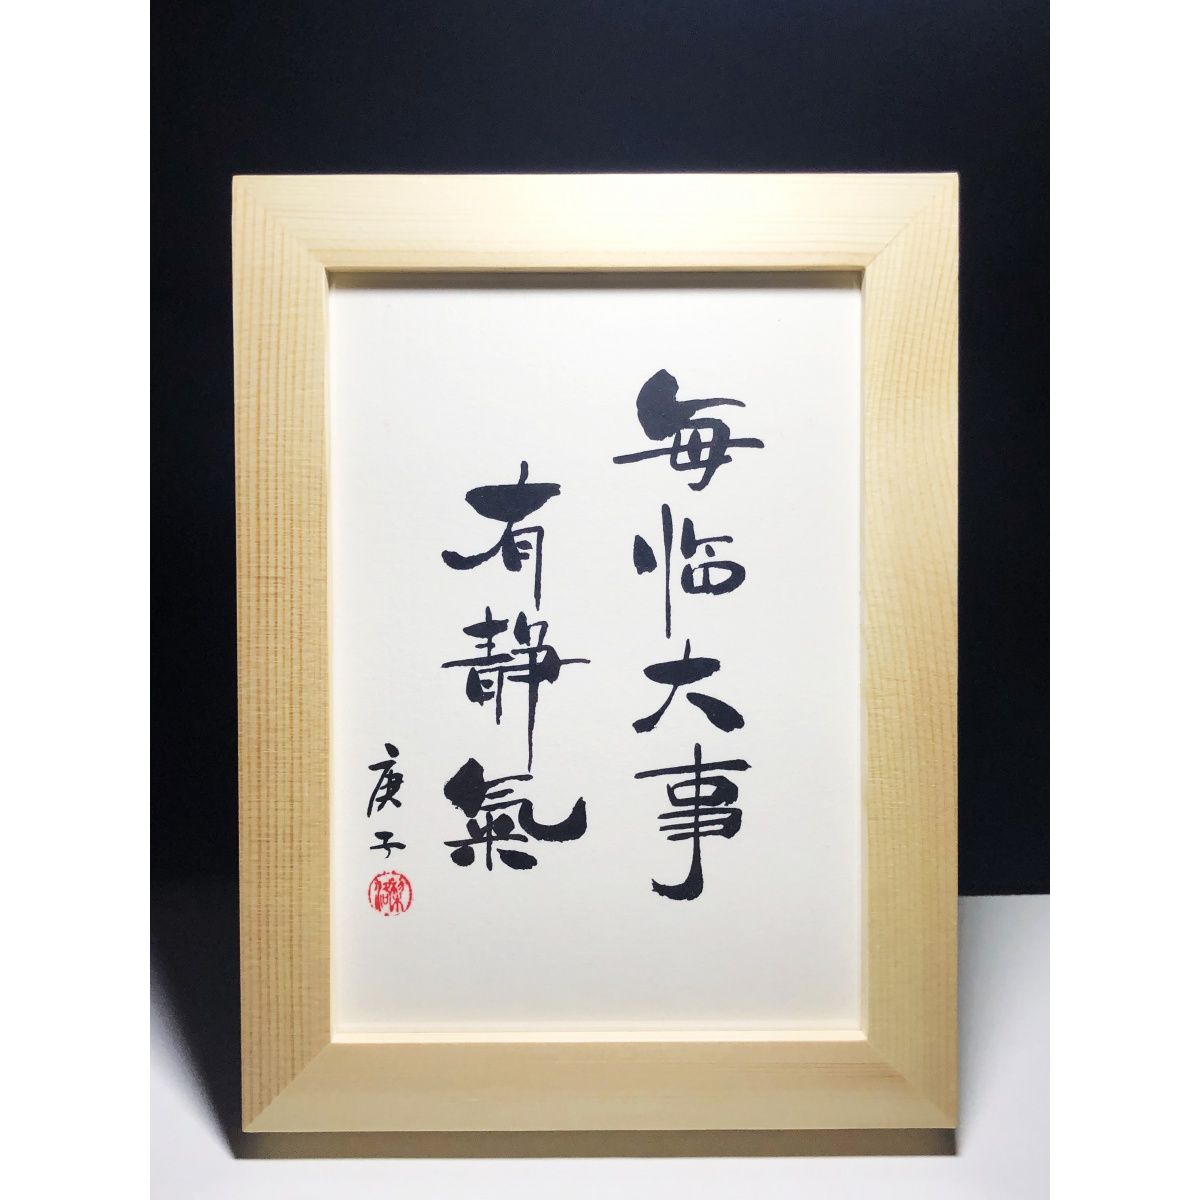 每临大事
有静氣
庚子